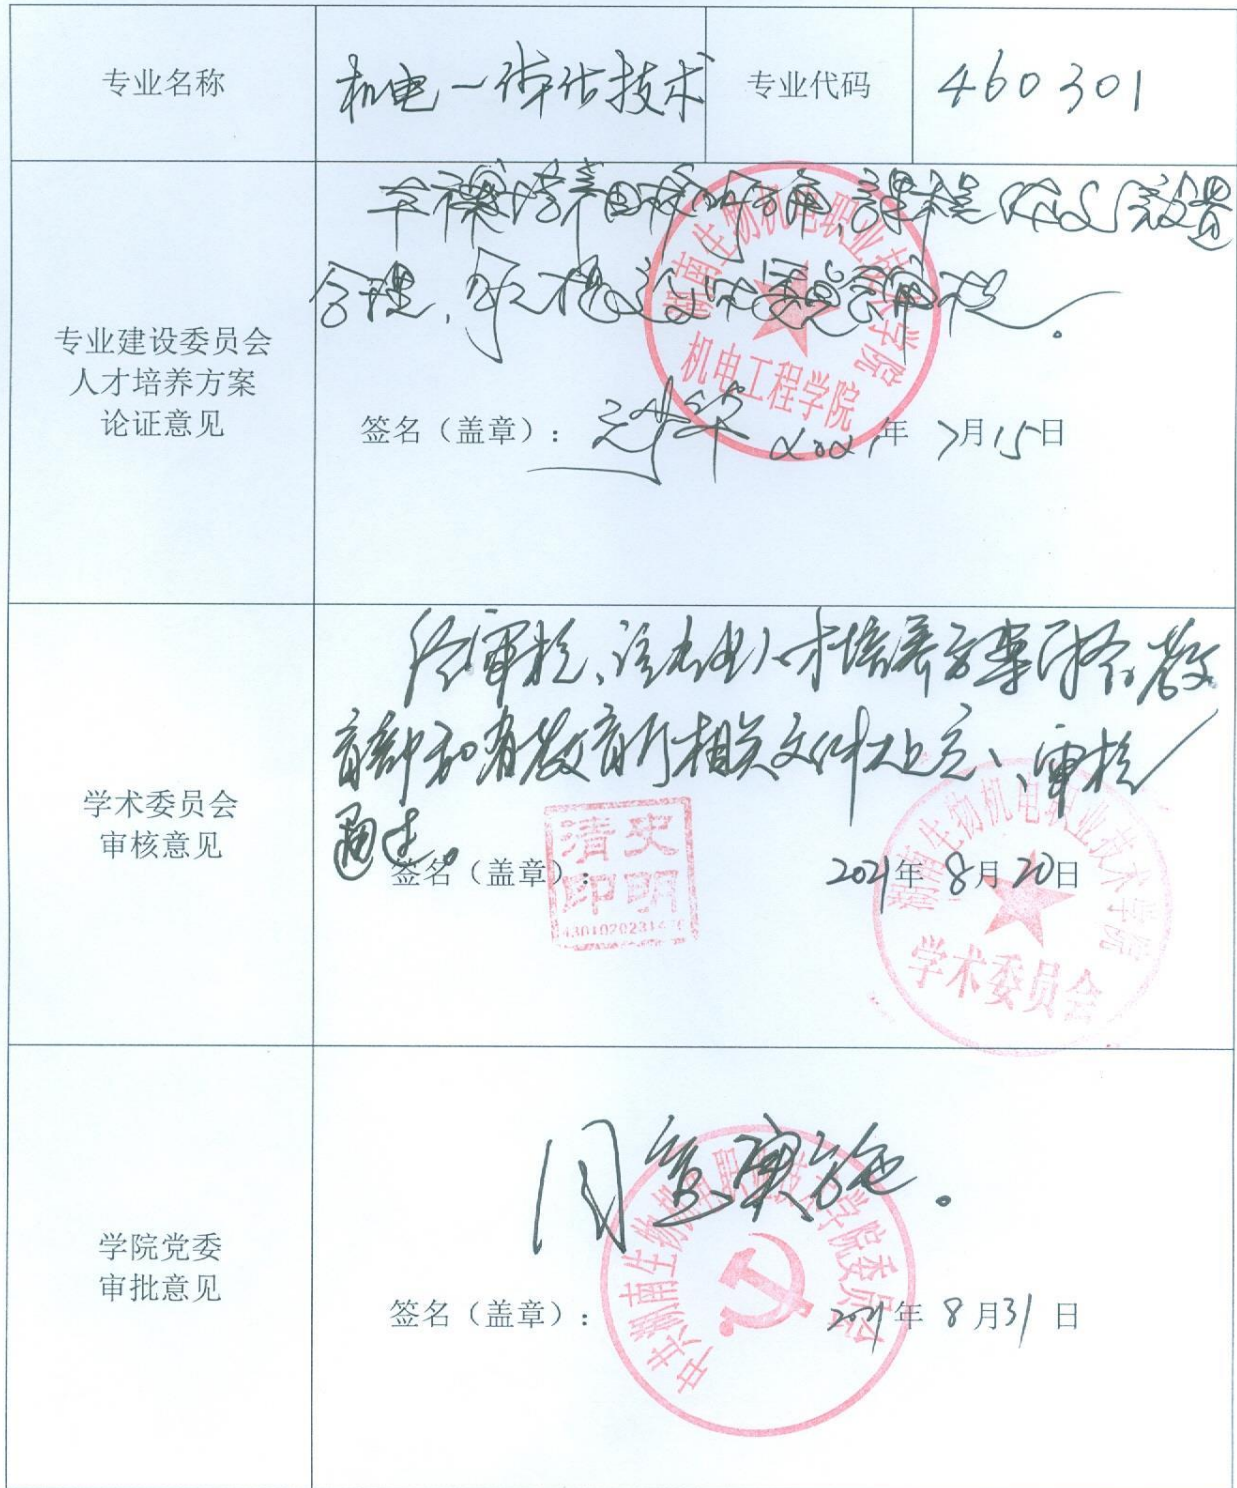 专业名称
机电一体化技术
专业代码
460301
专业建设委员会
人才培养方案
论证意见
培养目标明确,课程体系设置
合理,审核
签名(盖章):
2021年7月15日
湖南生物机电职业技术学院
机电工程学院
学术委员会
审核意见
经审核、该专业人才培养方案符合教
育部和省教育厅相关文件规定、审核
通过。
签名(盖章):
2021年8月20日
史明清印
湖南生物机电职业技术学院
学术委员会
学院党委
审批意见
同意实施。
签名(盖章):
2021年8月31日
中共湖南生物机电职业技术学院委员会